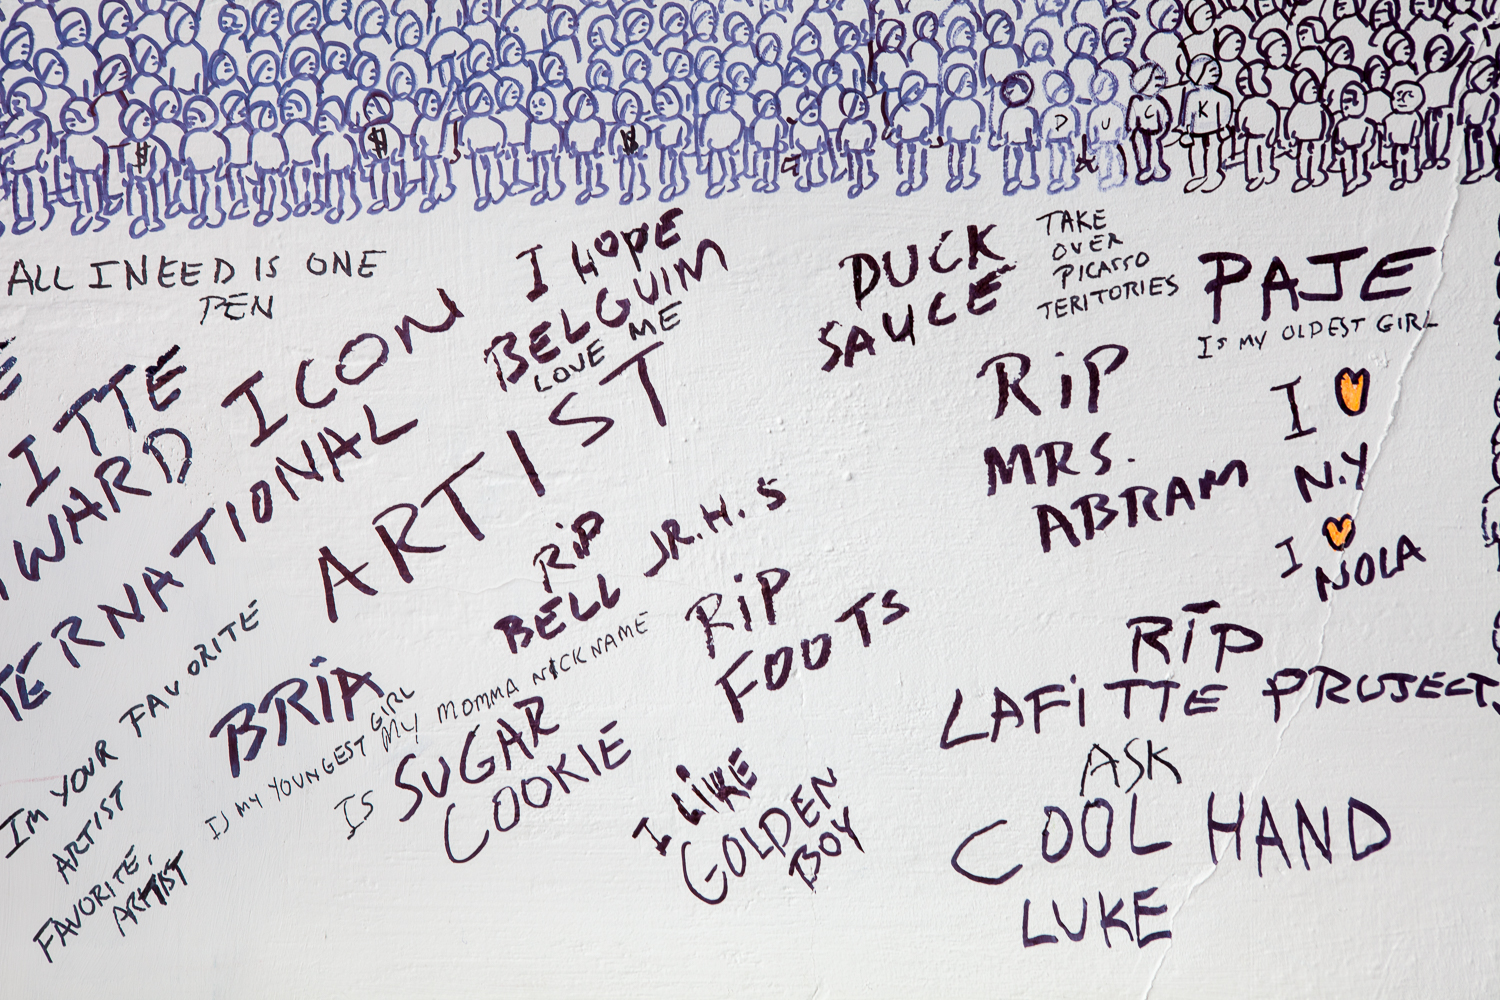 D U C K
ALL I NEED IS ONE
PEN
I HOPE
BELGUIM
LOVE ME
DUCK
SAUCE
TAKE
OVER
PICASSO
TERITORIES
PAJE
IS MY OLDEST GIRL
ITTE
WARD ICON
TERNATIONAL
ARTIST
RIP
MRS.
ABRAM
I
N.Y
I
NOLA
RIP
BELL JR.H.S
RIP
FOOTS
IM YOUR FAVORITE
ARTIST
FAVORITE,
ARTIST
BRIA
IS MY YOUNGEST GIRL
MY MOMMA NICKNAME
IS SUGAR
COOKIE
I LIKE
GOLDEN
BOY
RIP
LAFITTE PROJECTS
ASK
COOL HAND
LUKE